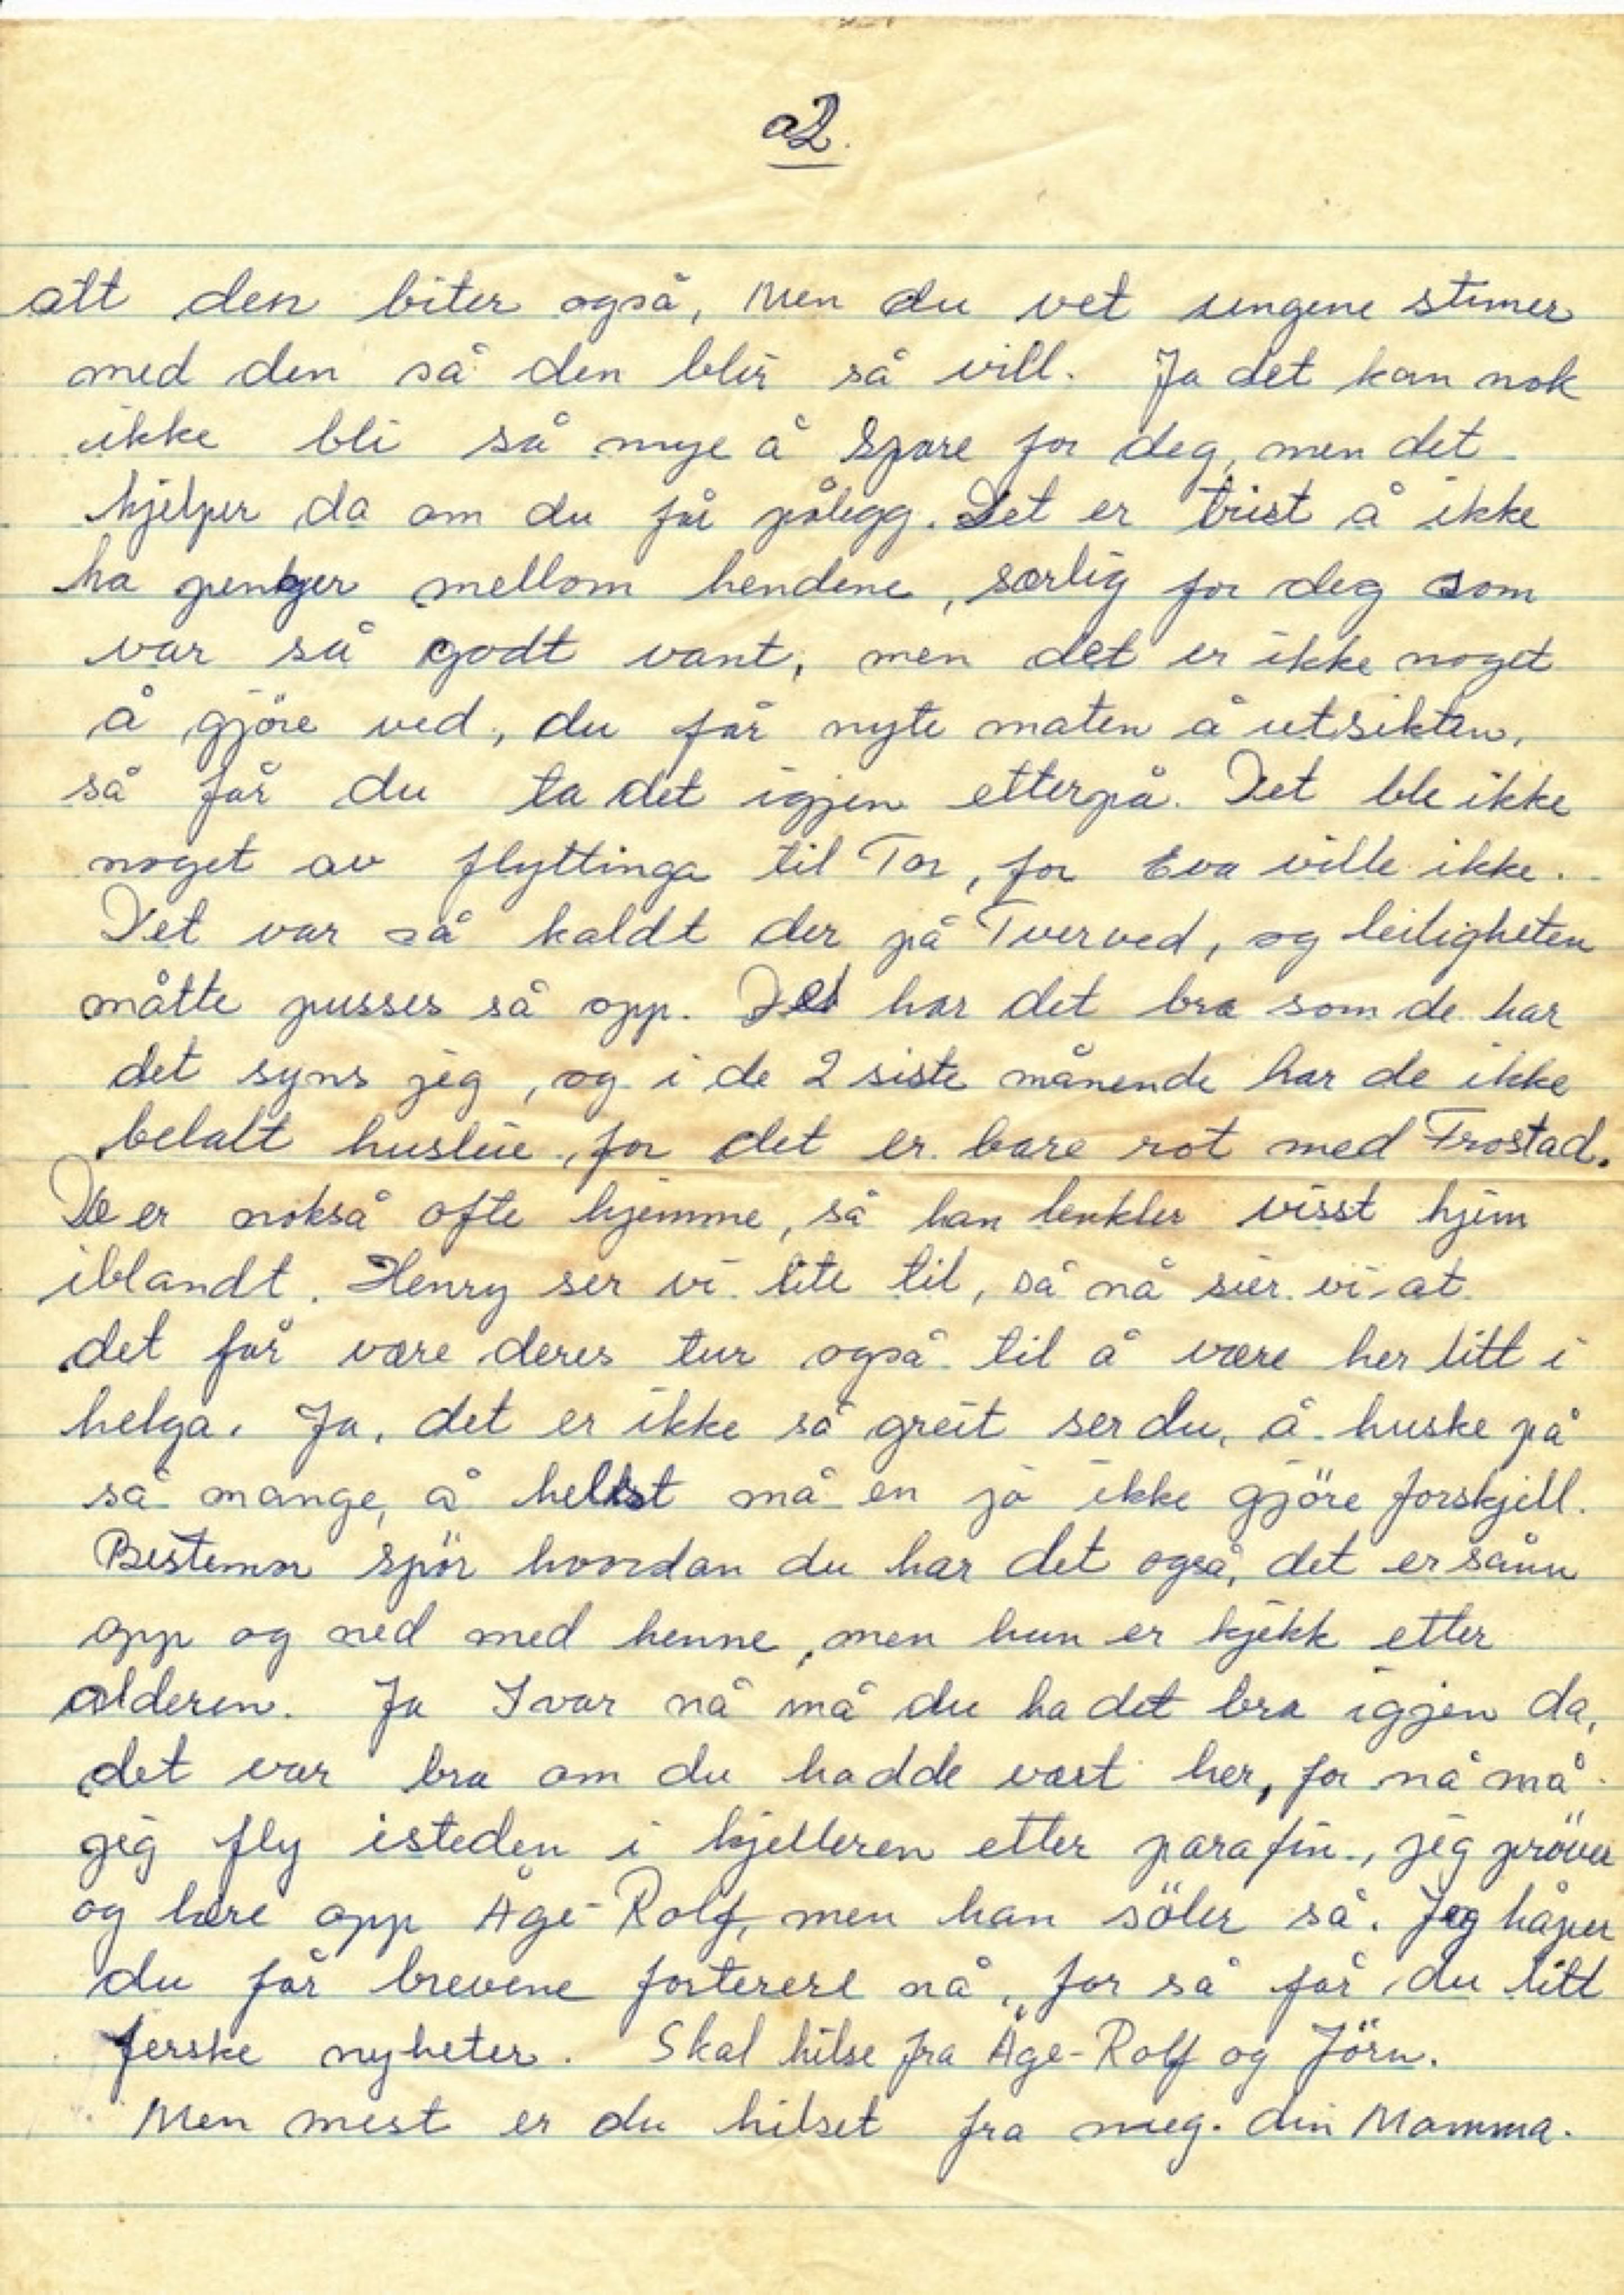 a2.
att den biter også, Men du vet ungene stimer
med den så den blir så vill. Ja det kan nok
ikke bli så mye å Spare for deg, men det
hjelper da om du får pålegg. Det er trist å ikke
ha penger mellom hendene, særlig for deg som
var så godt vant, men det er ikke noget
å gjöre ved, du får nyte maten å utsikten,
så får du ta det igjen etterpå. Det ble ikke
noget av flyttinga til Tor, for Eva ville ikke.
Det var så kaldt der på Tverved, og leiligheten
måtte pusses så opp. Det har det bra som de har
det syns jeg, og i de 2 siste månende har de ikke
betalt husleie, for det er bare rot med Frostad.
De er nokså ofte hjemme, så han lenkler visst hjem
iblandt. Henry ser vi lite til, så nå sier vi at
det får være deres tur også til å være her litt i
helga. Ja, det er ikke så greit ser du, å huske på
så mange, å helst må en jo ikke gjöre forskjell.
Bestemor spör hvordan du har det også, det er sånn
opp og ned med henne, men hun er kjekk etter
alderen. Ja Ivar nå må du ha det bra igjen da,
det var bra om du hadde vært her, for nå må
jeg fly isteden i kjelleren etter parafin, jeg pröver
og lære opp Åge-Rolf, men han söler så. Jeg håper
du får brevene forterere nå, for så får du litt
ferske nyheter. Skal hilse fra Åge-Rolf og Jörn.
Men mest er du hilset fra meg. din Mamma.